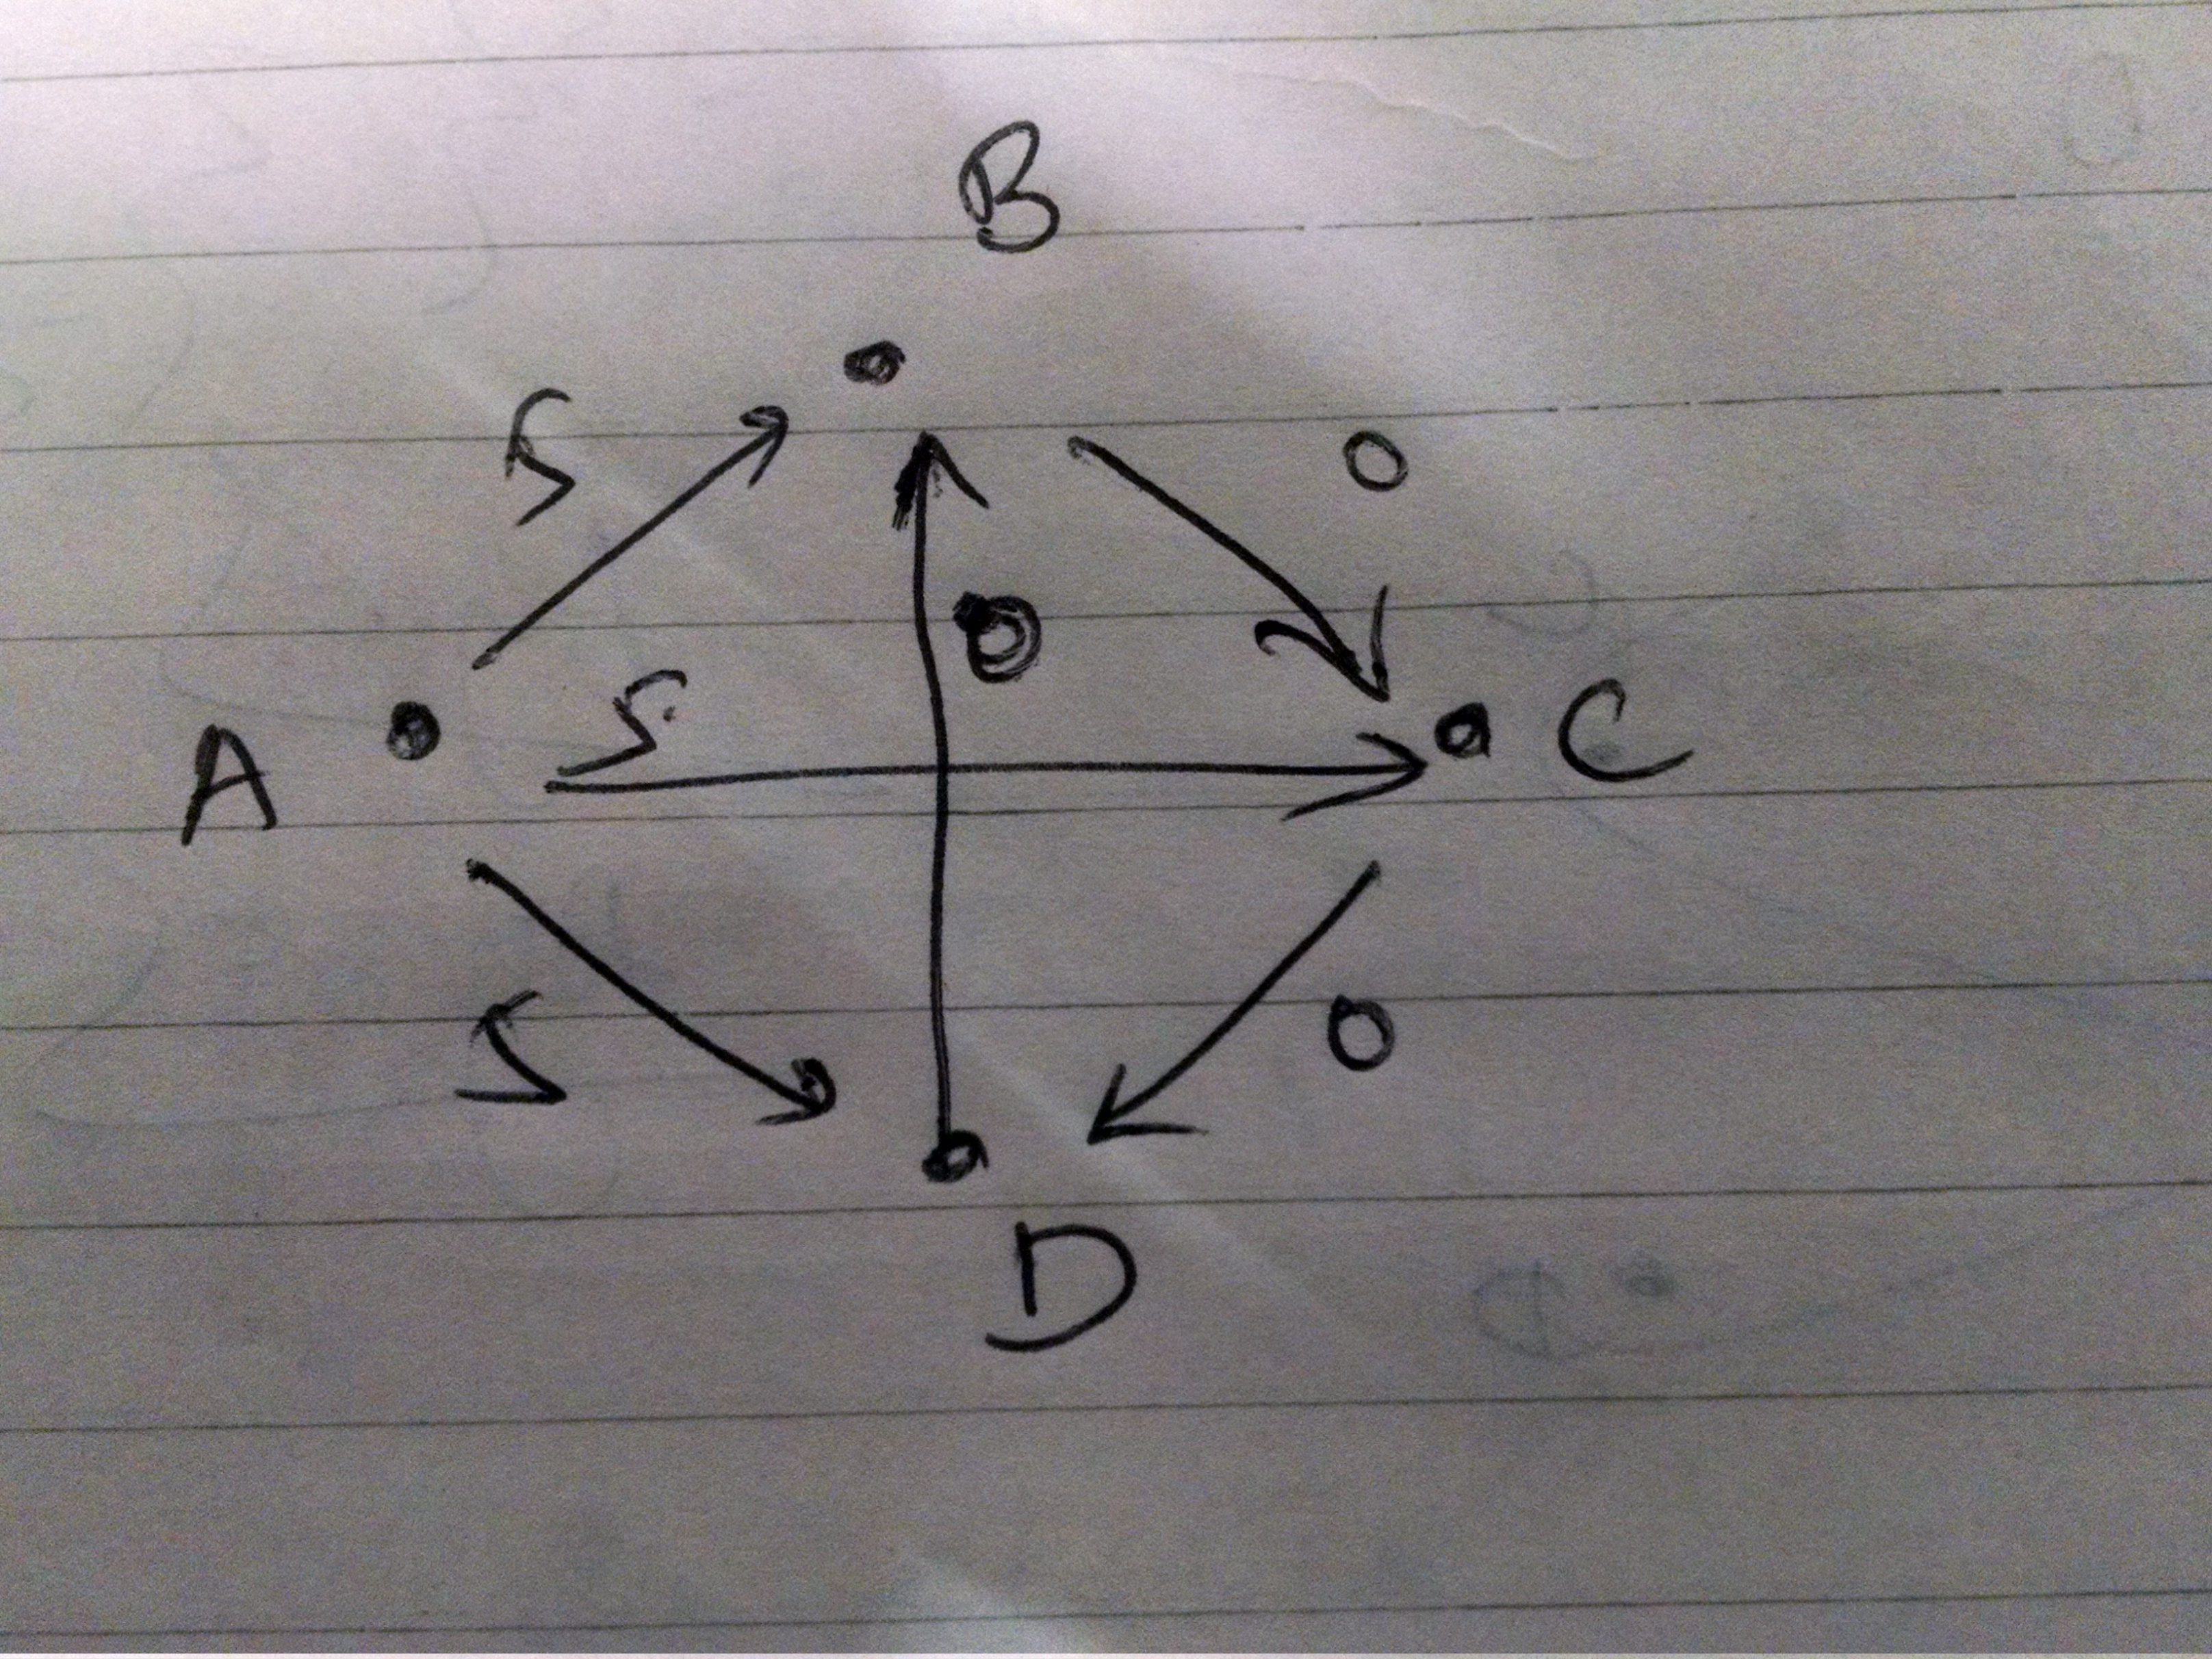 B
5
0
0
5
A
C
5
0
D